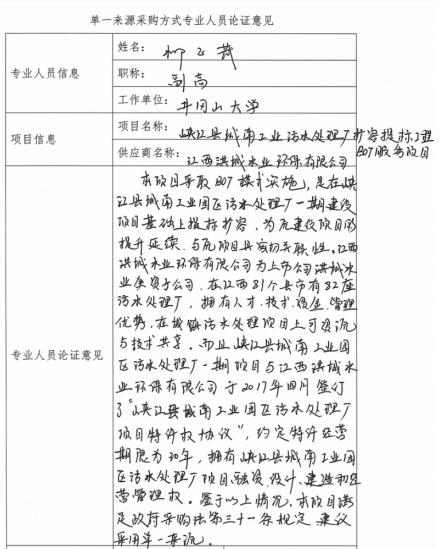 单一来源采购方式专业人员论证意见
专业人员信息
姓名：柳
职称：副高
工作单位：井冈山大学
项目信息
项目名称：峡江县城南工业污水处理厂扩容提标工程
BOT服务项目
供应商名称：江西洪城水业环保有限公司
专业人员论证意见
本项目采取BOT模式实施，是在峡
江县城南工业园区污水处理厂一期建设
项目基础上提标扩容，为原建设项目的
提升延续，与原项目具密切关联性。江西
洪城水业环保有限公司为上市公司洪城水
业全资子公司，在江西81个县市有82座
污水处理厂，拥有人才、技术、资金、管理
优势，在城镇污水处理项目上可资源
与技术共享。而且峡江县城南工业园
区污水处理厂一期项目与江西洪城水
业环保有限公司于2017年四月签订
了“峡江县城南工业园区污水处理厂
项目特许权协议”，约定特许经营
期限为30年，拥有峡江县城南工业园
区污水处理厂项目融资、设计、建造和经
营管理权。鉴于以上情况，本项目满
足政府采购法第三十一条规定，建议
采用单一来源。